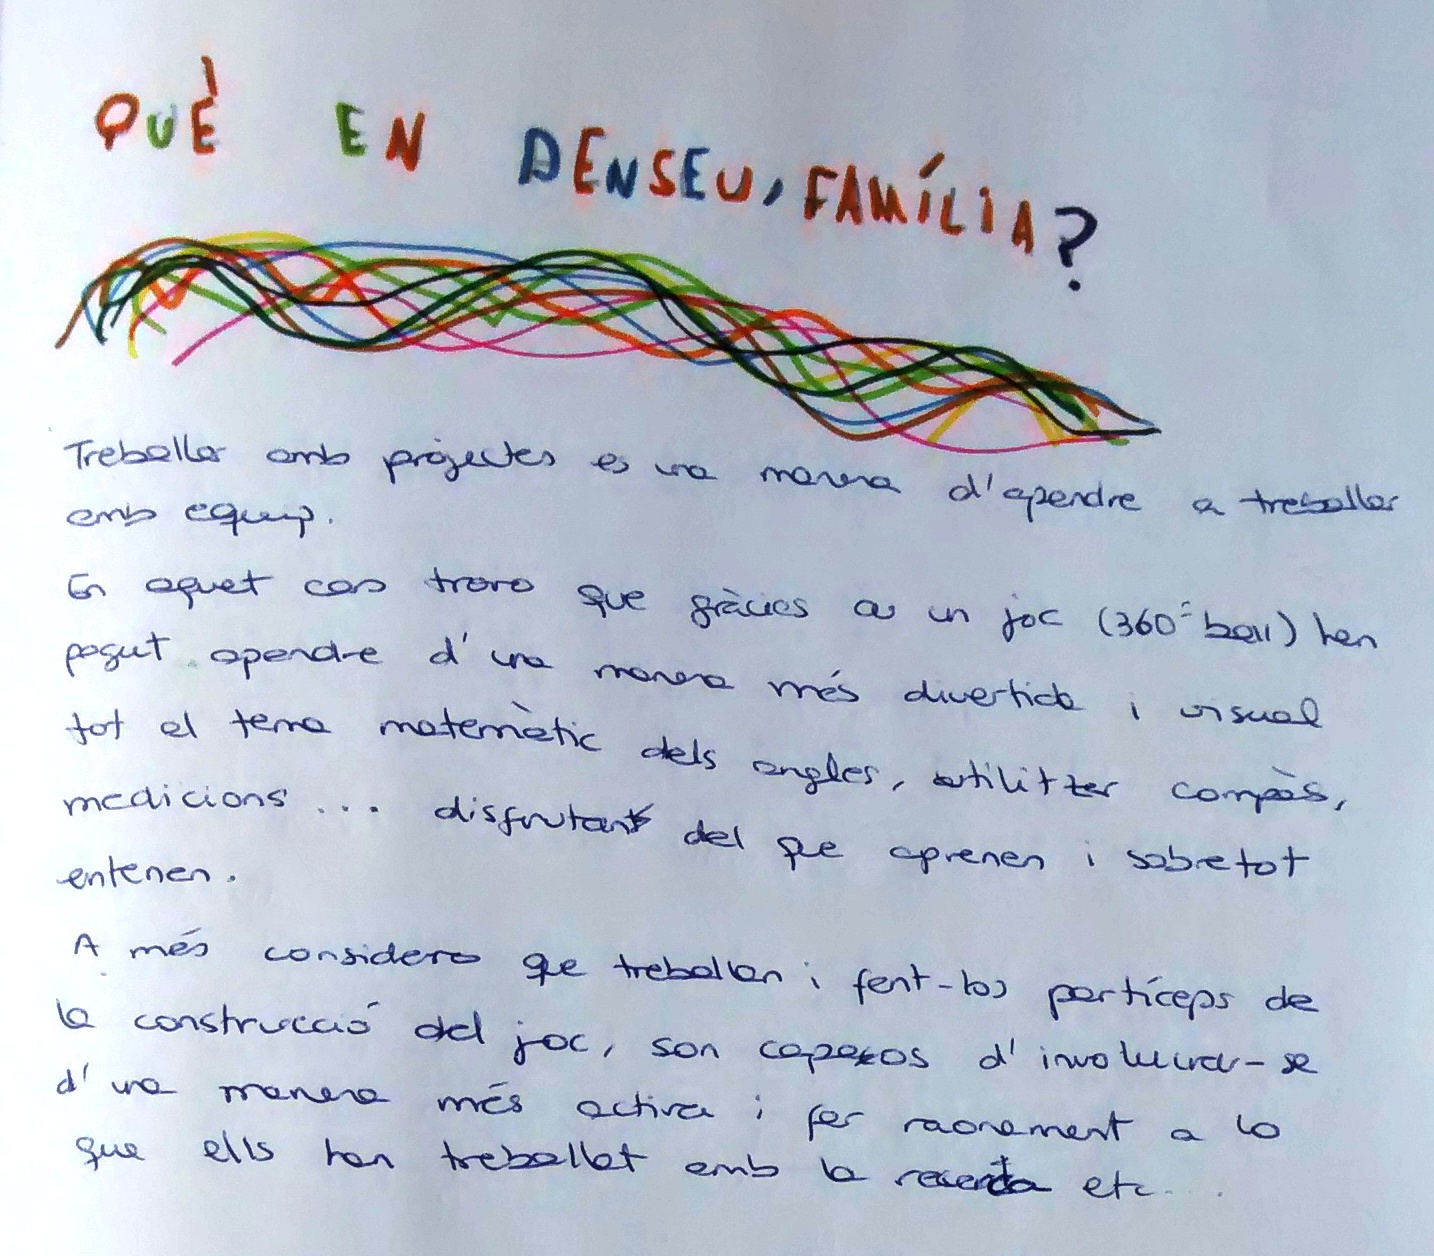 QUÈ EN PENSEU, FAMÍLIA?
Treballar amb projectes es una manera d'apendre a treballar
amb equip.
En aquet cas trovo que gràcies a un joc (360º ball) han
pogut apendre d'una manera més divertida i visual
tot el tema matemàtic dels angles, utilitzar compàs,
medicions ... disfrutant del que aprenen i sobretot
entenen.
A més considero que treballan i fent-los partíceps de
la construcció del joc, son capaços d'involucrar-se
d'una manera més activa i fer raonament a lo
que ells han treballat amb la etc...